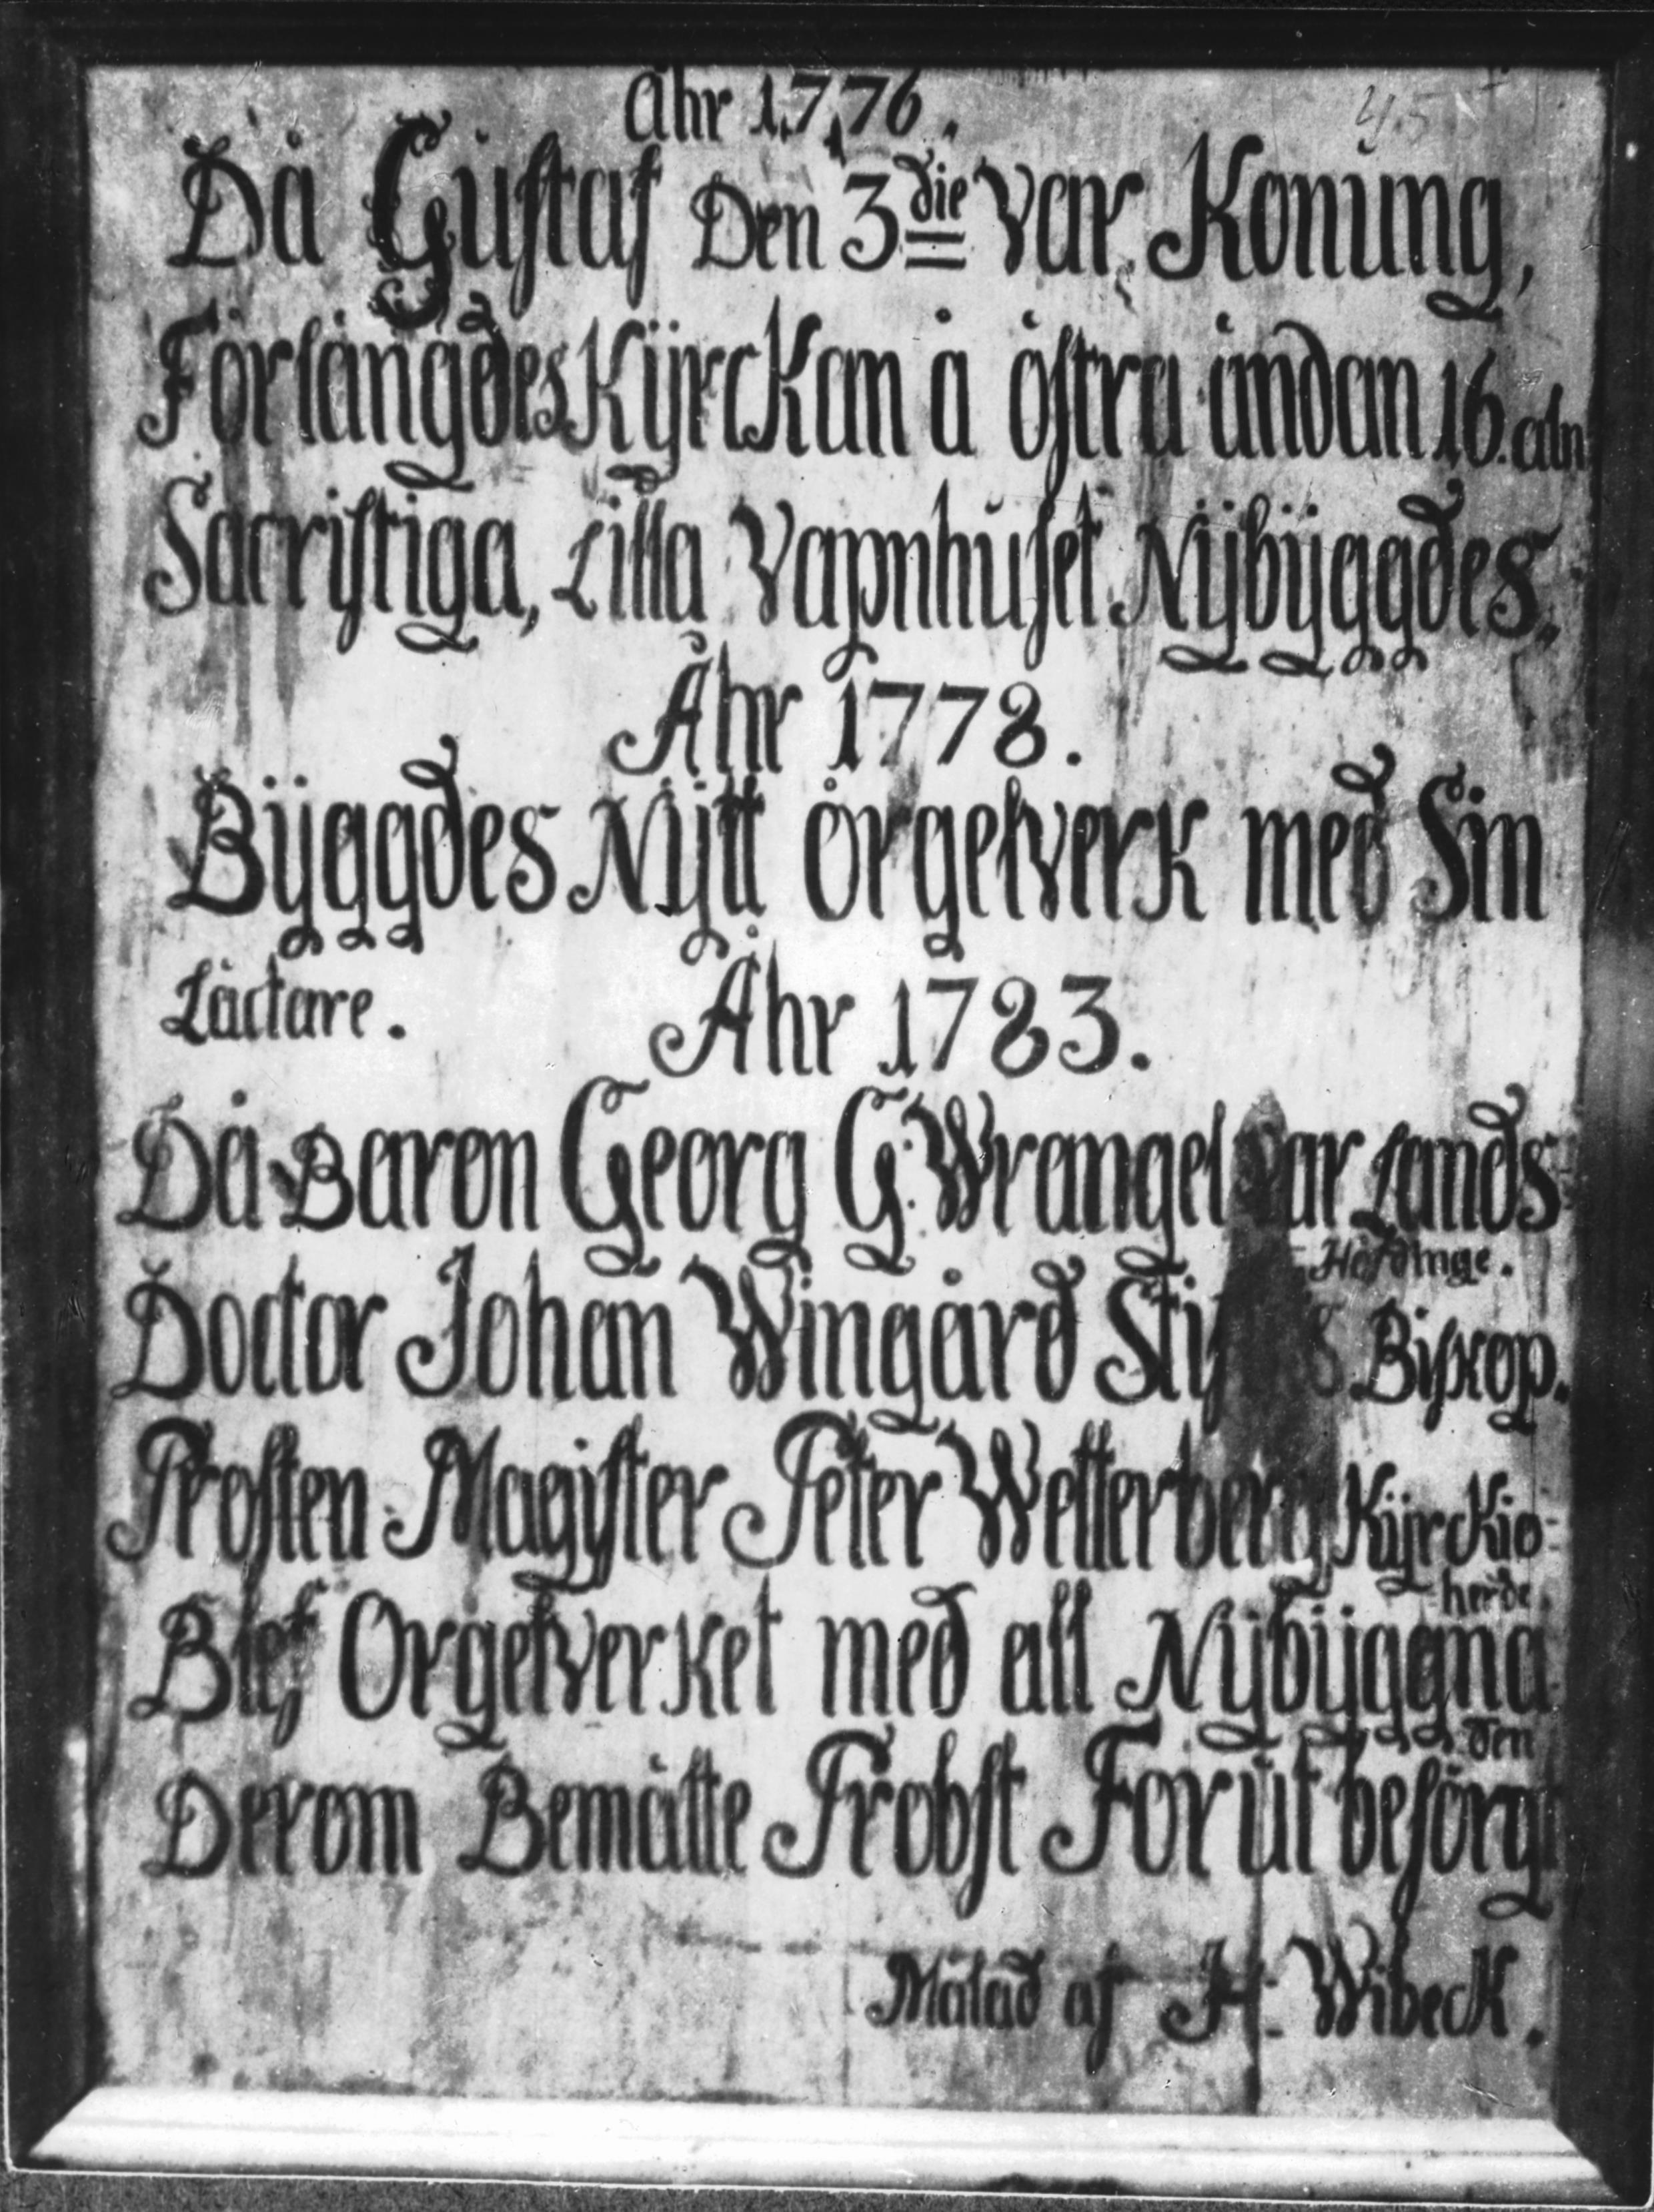 Åhr 1776.
45
Då Gustaf Den 3die var Konung,
Förlängdes Kÿrckan å östra ändan 16. aln
Sacristiga, Lilla Vapnhuset Nÿbÿggdes.
Åhr 1778.
Bÿggdes Nÿtt örgelverk med Sin
Läctare. Åhr 1783.
Då Baron Georg G: Wrangel var Lands-
Höfdinge.
Doctor Johan Wingård Biskop.
Prosten Magister Peter Wetterberg Kÿrckio-
herde.
Blef Orgelverket med all Nÿbÿggna
den
Derom Bemälte Probst Förut besörgt
Målad af H. Wibeck.